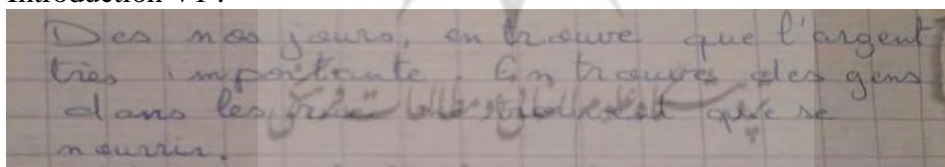 Introduction V1 :
Des nos jours, en trouve que l'argent
très importante. En trouve des gens
dans les que se
nourrir.